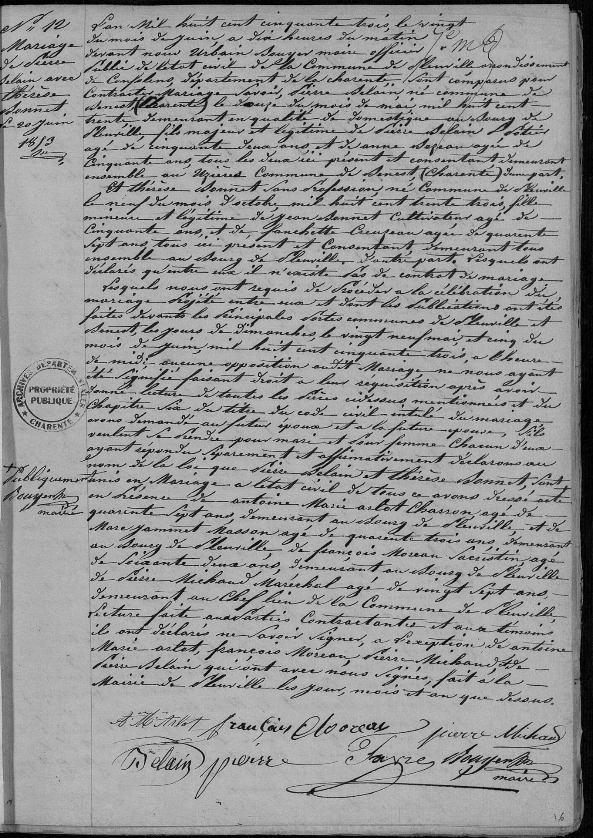 N.º 12
Mariage
de Pierre
Delain avec
Thérèse
Bonnet
20 Juin
1853
L'an Mil huit cent cinquante trois, le vingt
du mois de Juin, a dix heures du matin
devant nous Urbain Bouyer maire officier
de l'état civil de la Commune de Pleuville arrondissement
de Confolens, département de la charente, Sont comparus pour
Contracter Mariage Savoir, Pierre Delain né commune de
Benest (Charente) le douze du mois de mai mil huit cent
trente demeurant en qualité de domestique au Bourg de
Pleuville, fils majeur et légitime de Pierre Delain
agé de cinquante deux ans, et de anne agée de
Cinquante ans, tous les deux ici présent et consentant demeurant
ensemble au Commune de Benest (Charente) d'une part.
Et Thérèse Bonnet Sans Profession, né Commune de Pleuville
le neuf du mois d'octobre, mil huit cent trente trois, fille
mineure et légitime de Jean Bonnet Cultivateur agé de
Cinquante ans, et de, Fanchette Creuzeau agée de quarente
Sept ans, tous ici présent et Consentant, demeurant tous
ensemble au Bourg de Pleuville, d'autre part, Lesquels ont
déclarés qu'entre eux il n'existe Pas de contrat de mariage
Lesquels nous ont requis de Procéder a la célébration du
mariage Projété entre eux et dont les Publications ont étés
faites devant les Principales Portes communes de Pleuville et
Benest, les jours de dimanches, le vingt neuf mai et cinq de
mois de Juin, mil huit cent cinquante trois, a l'heure
de midi, aucune opposition audit Mariage ne nous ayant
été Signifiée faisant droit a leur requisition après avoir
donné lecture de toutes les Pièces cidessus mentionnées et du
Chapitre Six du titre du code civil intitulé du mariage
avons demandé au futur époux et a la future épouse, S'ils
veulent Se Prendre pour mari et pour femme Chacun d'eux
ayant répondu Séparement et affirmativement déclarons au
nom de la loi que Pierre Delain et Thérèse Bonnet Sont
unis en Mariage a l'état civil de tous ce avons dressé acte
en Présence de antoine Marie arlot Charron, agé de
quarente Sept ans, demeurant au Bourg de Pleuville et de
Marc Masson agé de quarente trois ans, demeurant
au Bourg de Pleuville, de françois Moreau Sacristin, agé
de Soixante deux ans, demeurant au Bourg de Pleuville
de Pierre Michaud Maréchal agé de vingt Sept ans,
demeurant au Chef lieu de la Commune de Pleuville
Lecture faite aux Parties Contractantes et aux témoins
ils ont déclarés ne Savoir Signer, a l'exeption de antoine
Marie arlot, françois Moreau, Pierre Michaud, de
Pierre Delain qui ont avec nous Signés, fait a la
Mairie de Pleuville les jour, mois et an que dessus.
+ Publiquement
maire
ARCHIVES DÉPARTEMENTALES
PROPRIÉTÉ
PUBLIQUE
CHARENTE
A. M. Arlot françois Moreau pierre Michaud
Delain pierre Favre Bouyer
maire
16